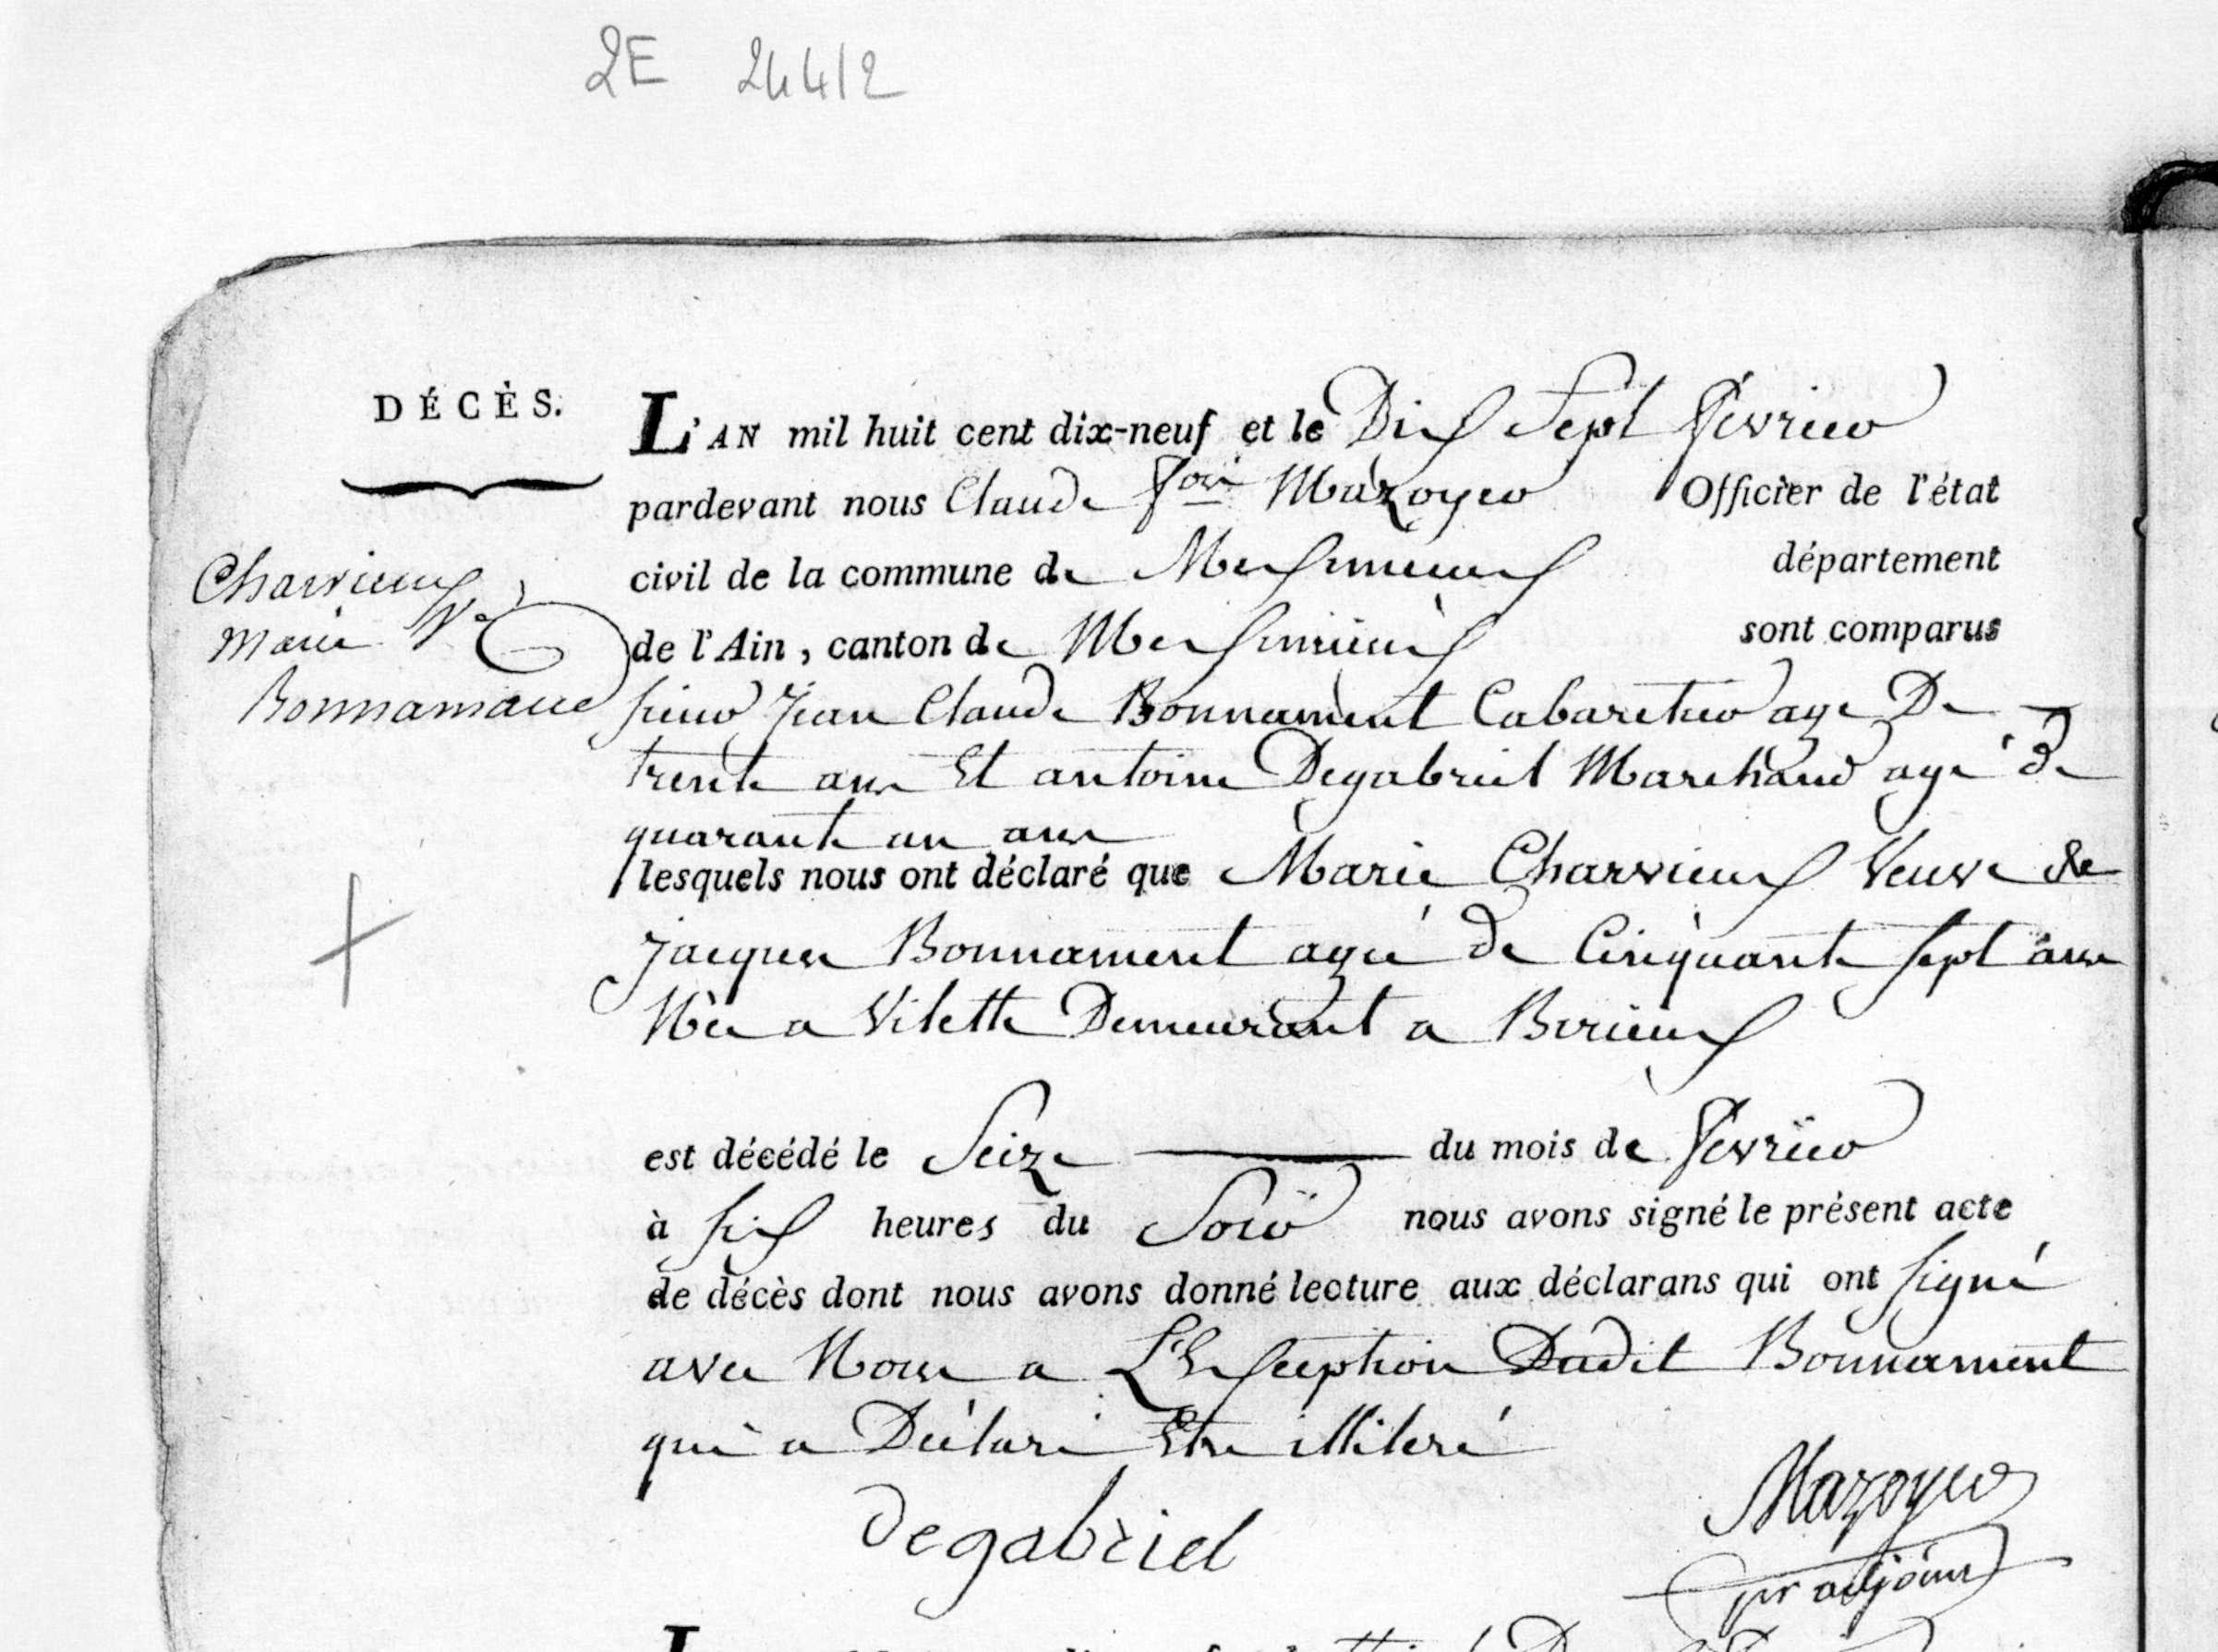 2E 24412
DÉCÈS.
L'AN mil huit cent dix-neuf et le Dix Sept février
pardevant nous Claude foix Mazoyer Officier de l'état
civil de la commune de Messimieux département
de l'Ain, canton de Messimieux sont comparus
Charvieux
Marie Ve
Bonnamant
sieur Jean Claude Bonnament Cabaretier age De
trente ans Et antoine Degabriel Marchand agé de
quarante un ans
lesquels nous ont déclaré que Marie Charvieux Veuve de
Jacques Bonnament agée de Cinquante sept ans
Née a Vilette Demeurant a Birieux
est décédé le Seize du mois de février
à six heures du Soir nous avons signé le présent acte
de décès dont nous avons donné lecture aux déclarans qui ont signé
avec Nous a L'Exception Dudit Bonnament
qui a Déclaré Etre illiteré
degabriel
Mazoyer
pr adjoint